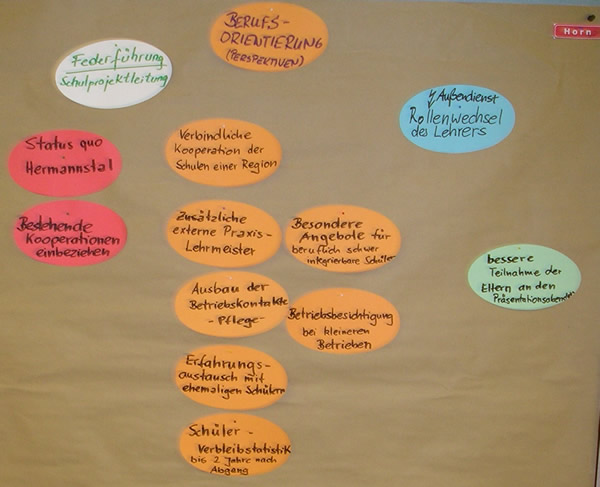 BERUFS-
ORIENTIERUNG
(PERSPEKTIVEN)
Horn
Federführung
Schulprojektleitung
Außendienst
Rollenwechsel
des Lehrers
Status quo
Hermannstal
Verbindliche
Kooperation der
Schulen einer Region
Bestehende
Kooperationen
einbeziehen
Zusätzliche
externe Praxis-
Lehrmeister
Besondere
Angebote für
beruflich schwer
integrierbare Schüler
bessere
Teilnahme der
Eltern an den
Präsentationsabenden
Ausbau der
Betriebskontakte
- Pflege -
Betriebsbesichtigung
bei kleineren
Betrieben
Erfahrungs-
austausch mit
ehemaligen Schülern
Schüler -
Verbleibstatistik
bis 2 Jahre nach
Abgang